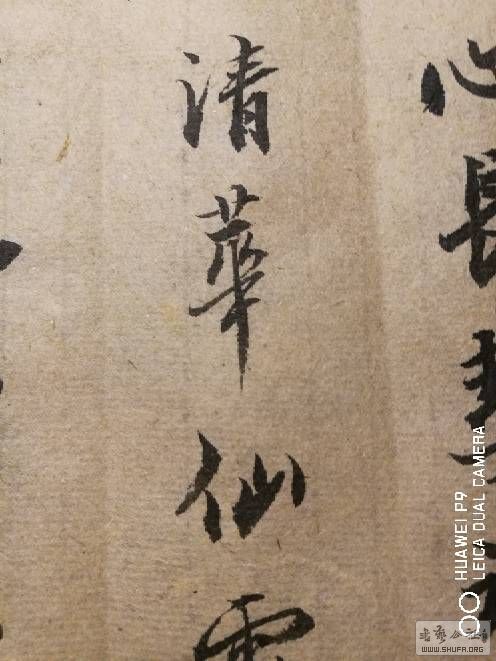 心長
清華仙
HUAWEI P9
LEICA DUAL CAMERA
书艺公社
WWW.SHUFA.ORG